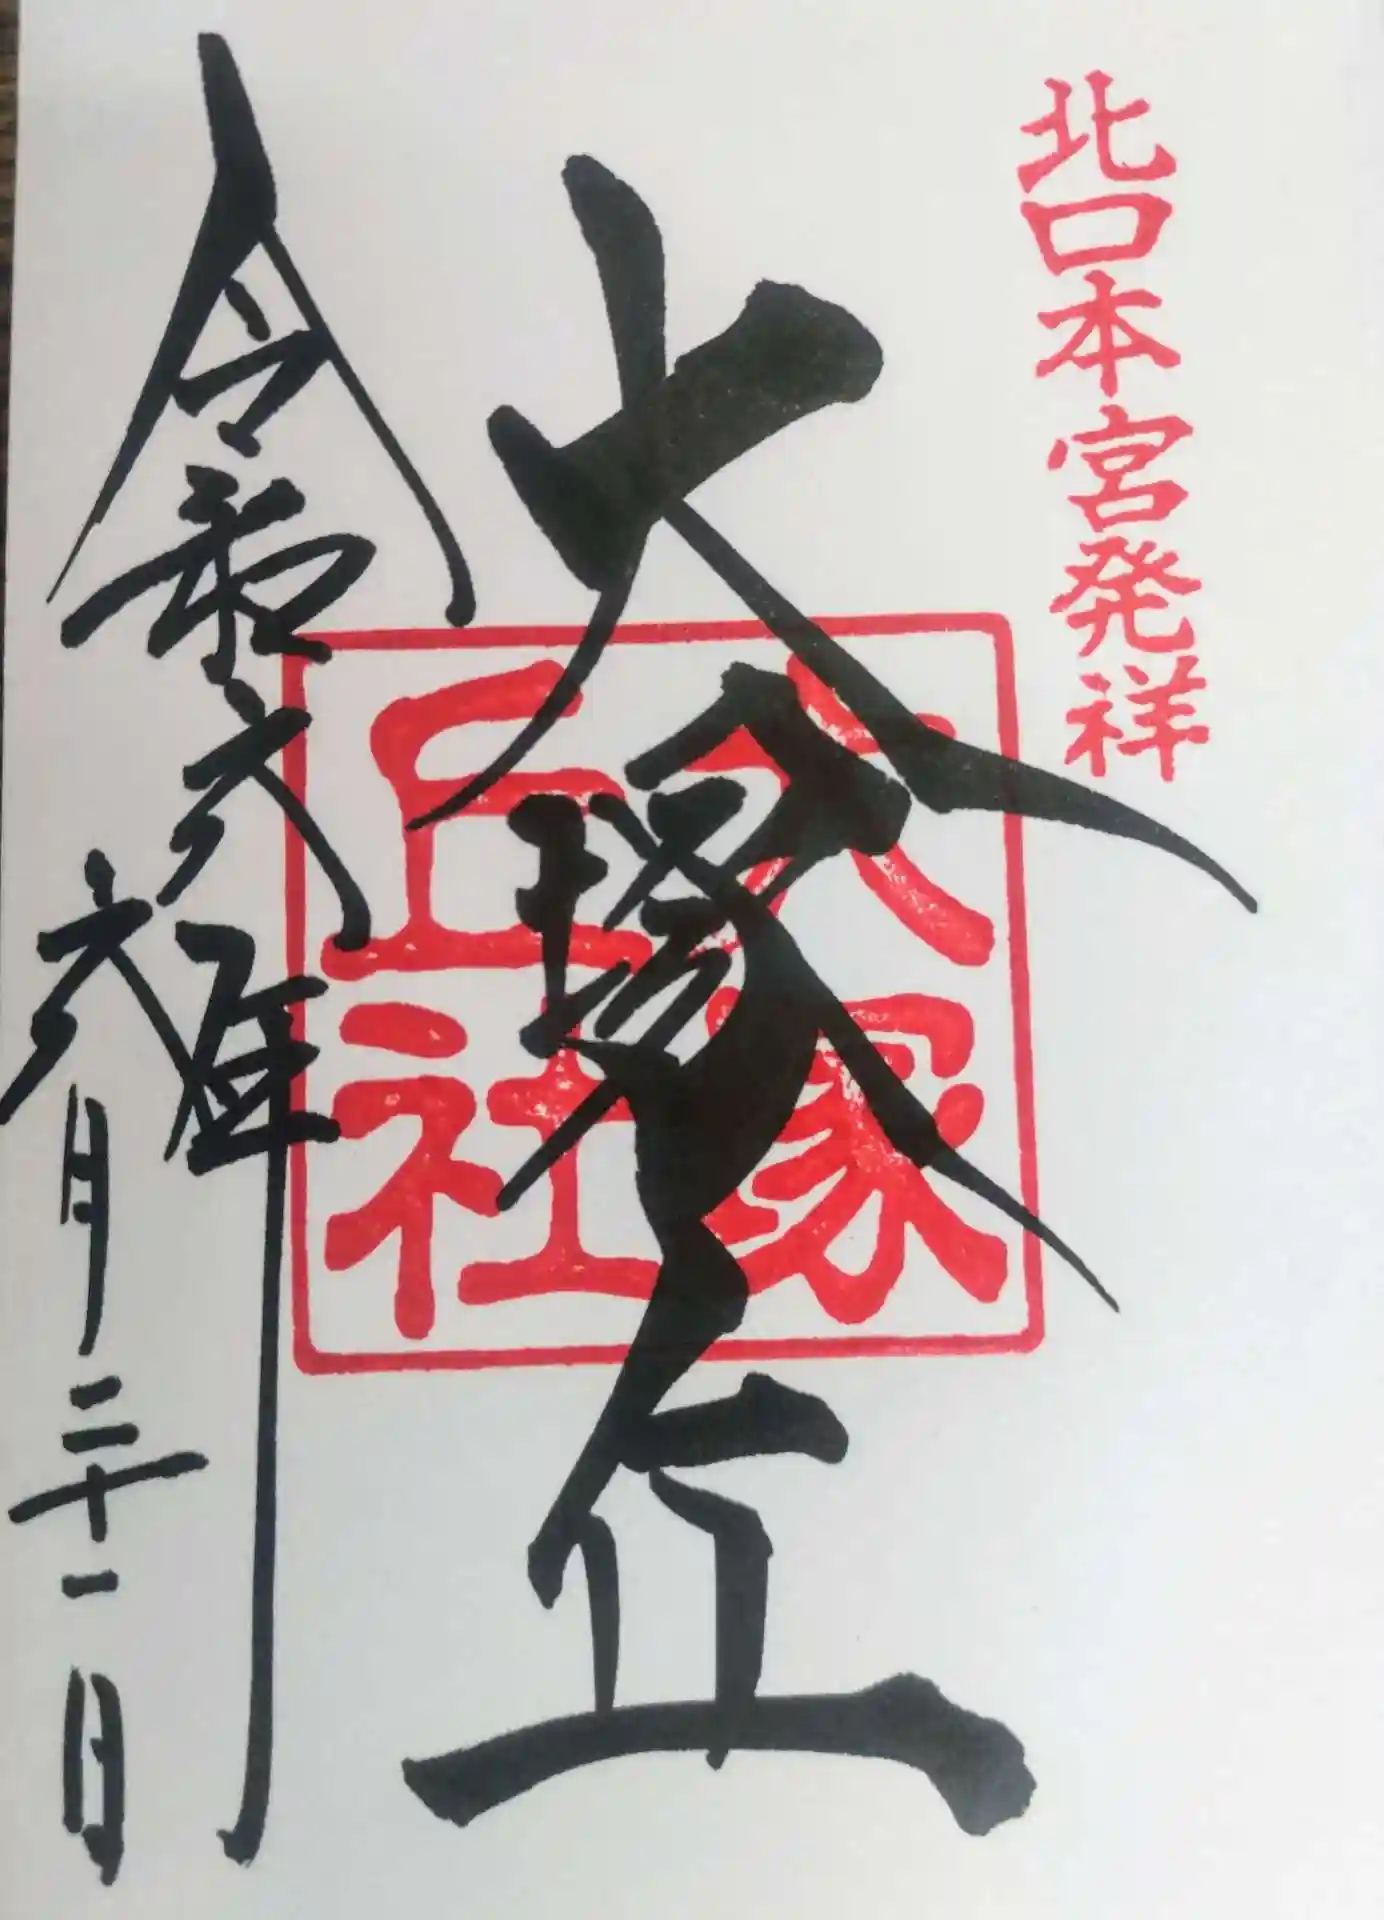 北口本宮発祥
大塚丘
大冢
丘社
令和六年
六月二十一日